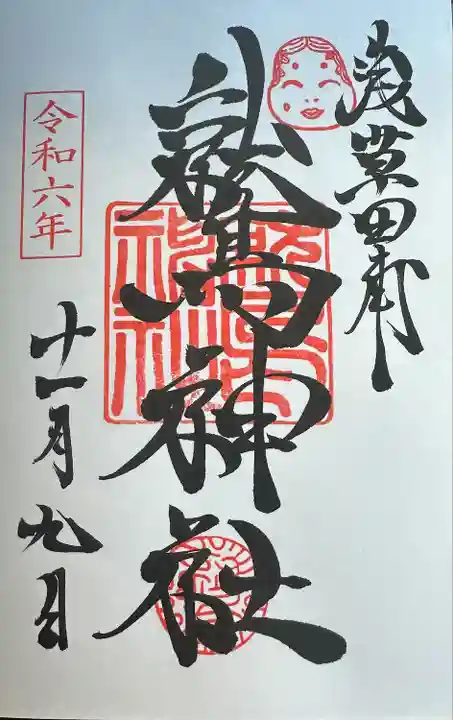 浅草田甫
鷲神社
令和六年
十一月九日